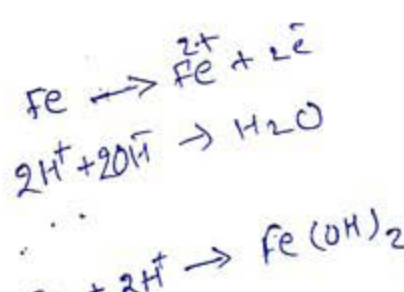 Fe → Fe²⁺ + 2e⁻
2H⁺ + 2OH⁻ → H₂O
+ 2H⁺ → Fe(OH)₂